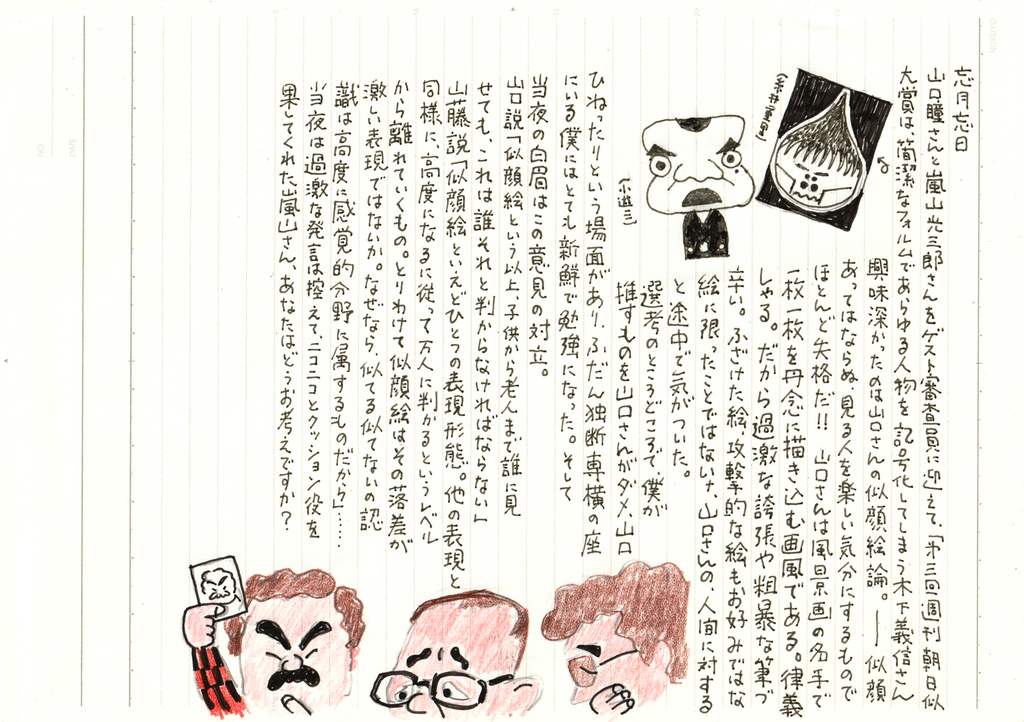 忘月忘日
山口瞳さんと嵐山光三郎さんをゲスト審査員に迎えて、「第三回週刊朝日似
大賞は、簡潔なフォルムであらゆる人物を記号化してしまう木下義信さん
興味深かったのは山口さんの似顔絵論。――似顔
あってはならぬ、見る人を楽しい気分にするもので
ほとんど失格だ!! 山口さんは風景画の名手で
一枚一枚を丹念に描き込む画風である。律義
しゃる。だから過激な誇張や粗暴な筆づ
辛い。ふざけた絵、攻撃的な絵もお好みではな
絵に限ったことではないナ、山口さんの、人間に対する
と途中で気がついた。
選考のところどころで、僕が
推すものを山口さんがダメ、山口
(糸井重里)
(小遊三)
ひねったりという場面があり、ふだん独断専横の座
にいる僕にはとても新鮮で勉強になった。そして
当夜の白眉はこの意見の対立。
山口説「似顔絵という以上、子供から老人まで誰に見
せても、これは誰それと判からなければならない」
山藤説「似顔絵といえどひとつの表現形態。他の表現と
同様に、高度になるに従って万人に判かるというレベル
から離れていくもの。とりわけて似顔絵はその落差が
激しい表現ではないか。なぜなら、似てる似てないの認
識は高度に感覚的分野に属するものだから」……
当夜は過激な発言は控えて、ニコニコとクッション役を
果してくれた嵐山さん、あなたはどうお考えですか?
NO.
DATE
KOKUYO